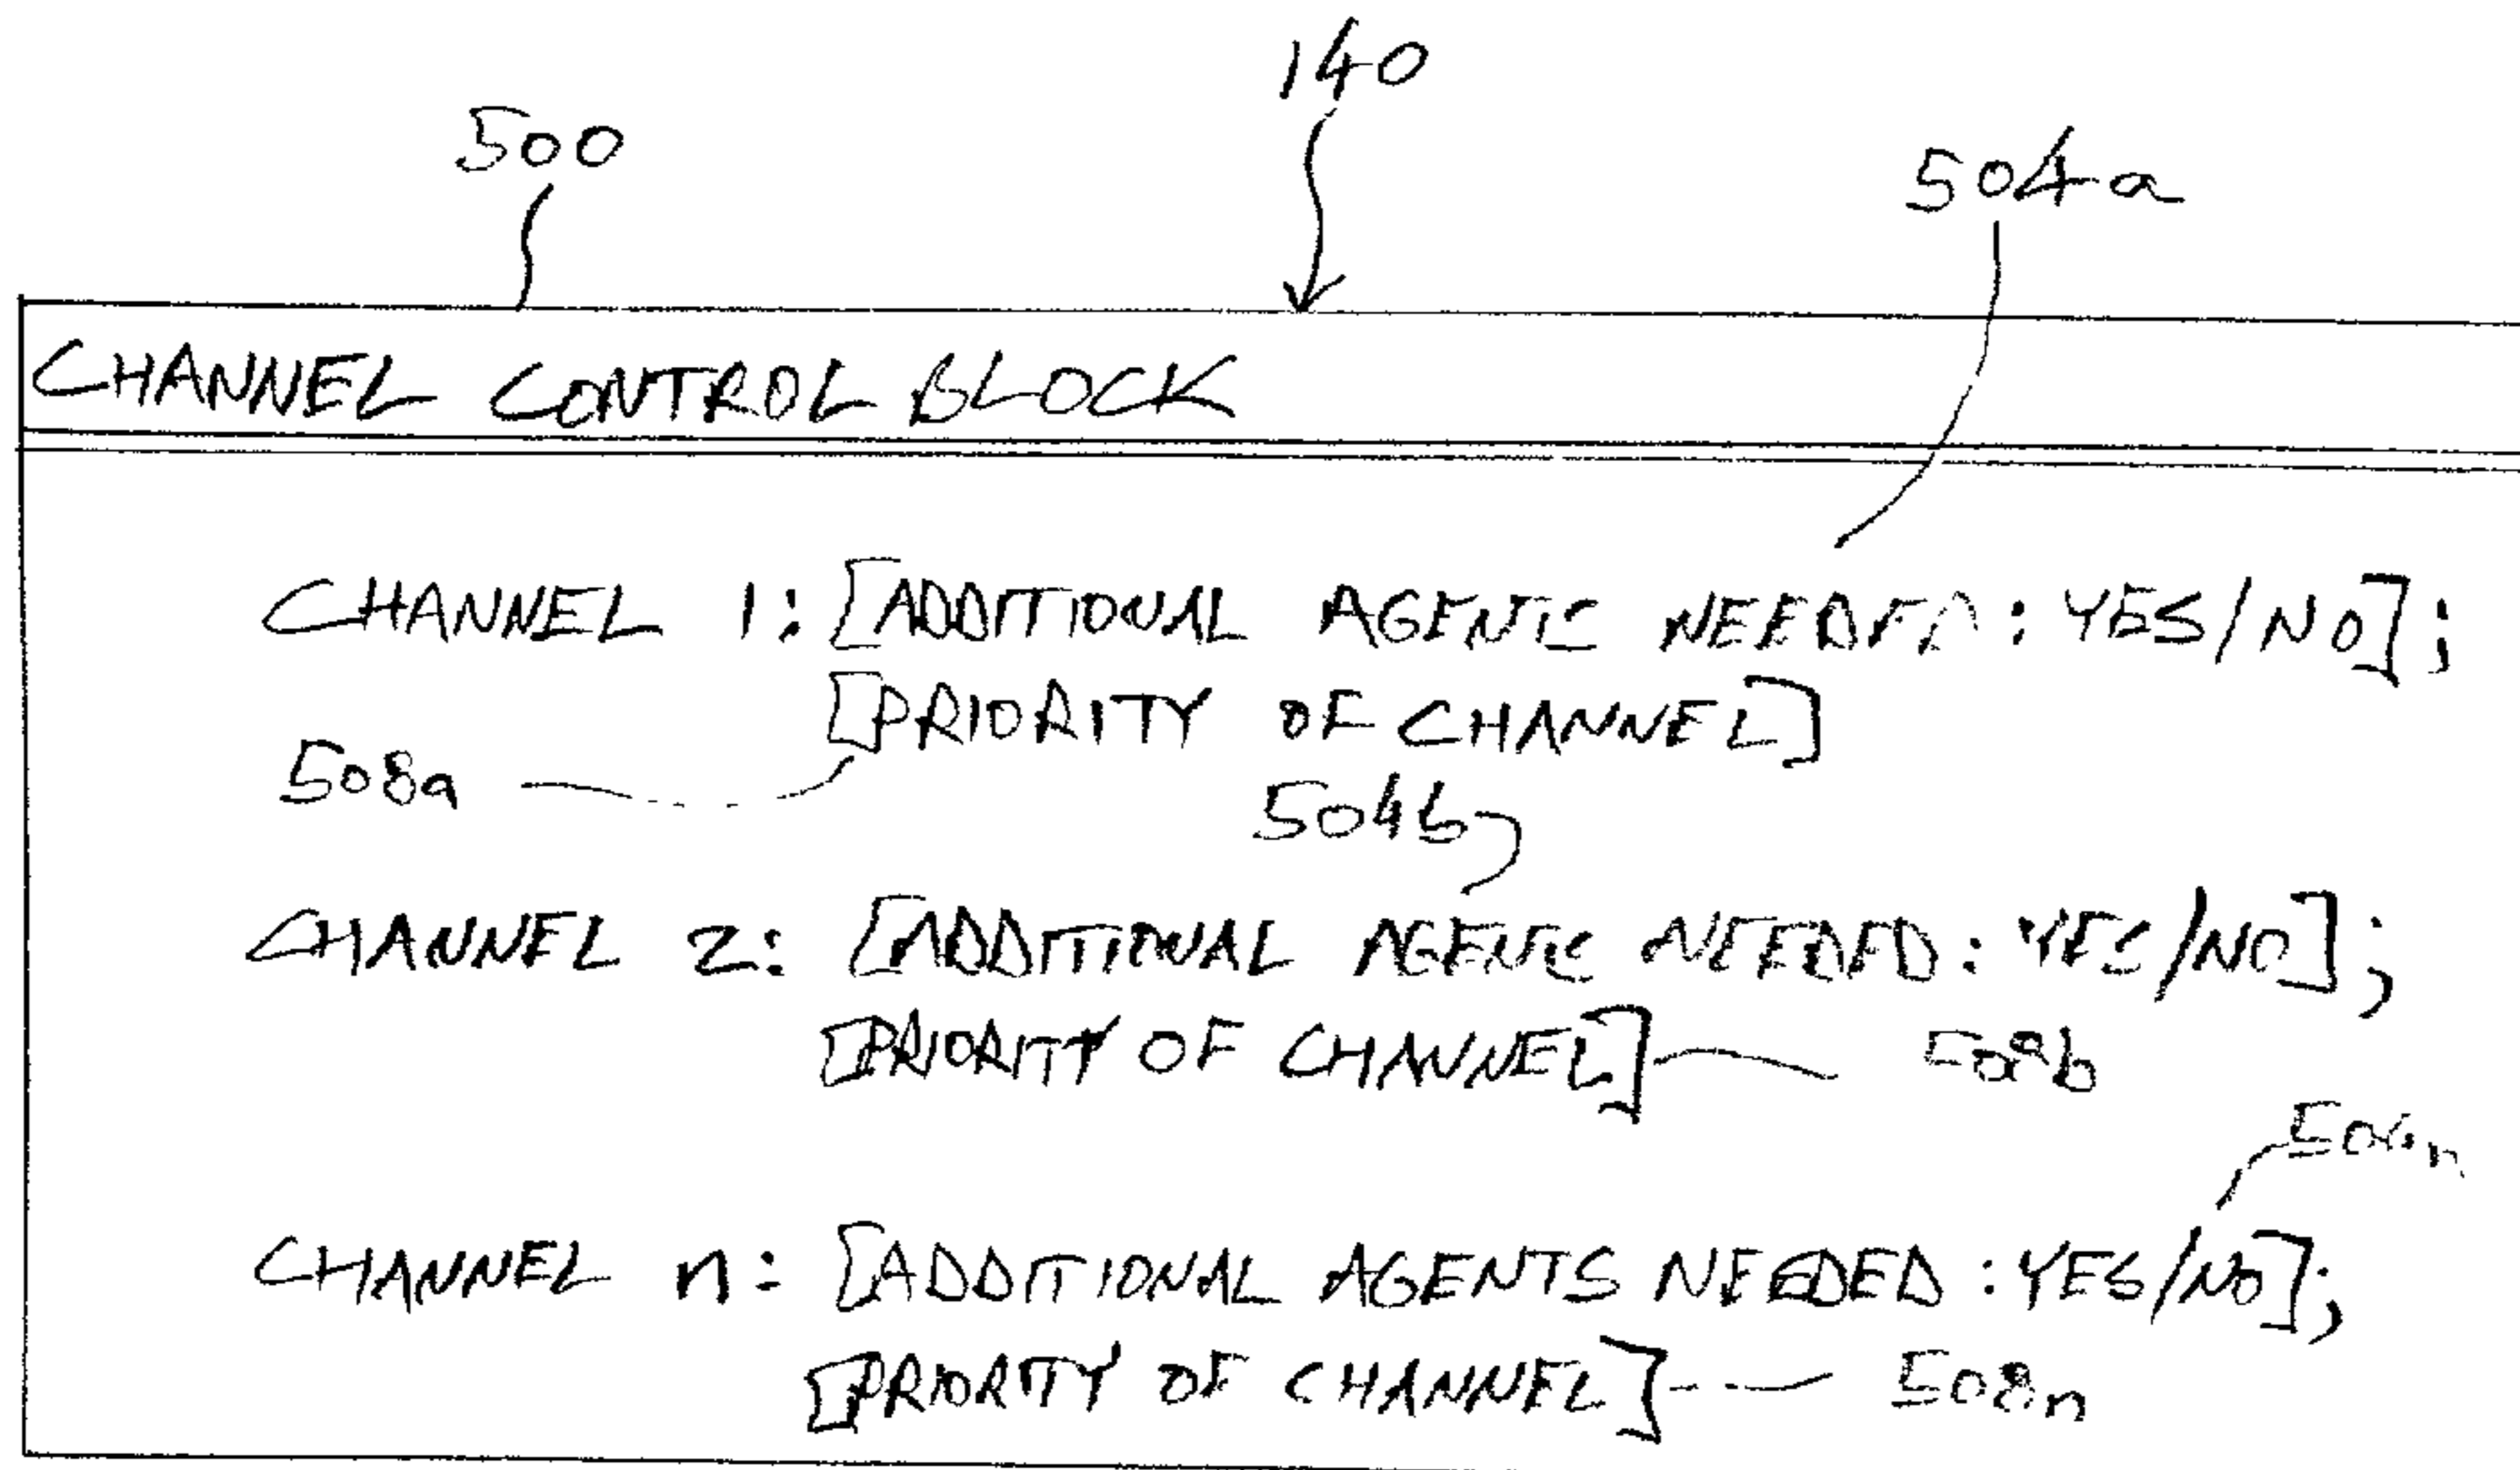 140
500
504a
CHANNEL CONTROL BLOCK
CHANNEL 1: [ADDITIONAL AGENTS NEEDED: YES/NO];
[PRIORITY OF CHANNEL]
508a
504b
CHANNEL 2: [ADDITIONAL AGENTS NEEDED: YES/NO];
[PRIORITY OF CHANNEL] 508b
504n
CHANNEL n: [ADDITIONAL AGENTS NEEDED: YES/NO];
[PRIORITY OF CHANNEL] 508n